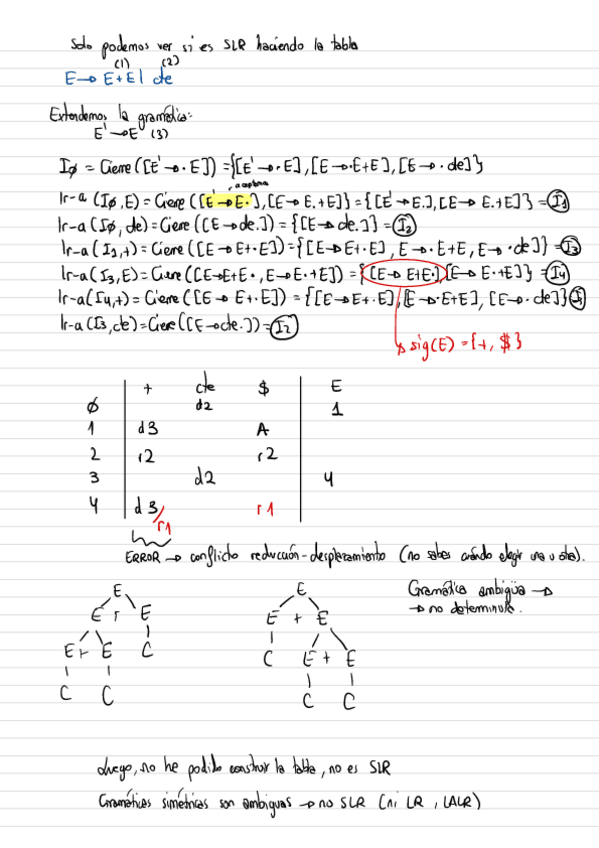 Solo podemos ver si es SLR haciendo la tabla
(1) (2)
E→ E+E | cte
Extendemos la gramática:
E'→E (3)
Iø = Cierre([E'→·E]) = {[E'→·E],[E→·E+E],[E→·cte]}
Ir-a (Iø,E) = Cierre([E'→E·],[E→E.+E]} = {[E'→E.],[E→E.+E]} = I1
Ir-a (Iø,cte) = Cierre([E→cte.]) = {[E→cte.]} = I2
Ir-a (I1,+) = Cierre([E→E+·E]) = {[E→E+·E], E→·E+E, E→·cte]} = I3
Ir-a (I3,E) = Cierre([E→E+E·, E→E·+E]) = {[E→E+E·],[E→E·+E]} = I4
Ir-a (I4,+) = Cierre([E→E+.E]) = {[E→E+·E],[E→·E+E],[E→·cte]} I3
Ir-a (I3,cte) = Cierre([E→cte.]) = I2
sig(E) = {+, $}
+ cte $ E
ø d2 1
1 d3 A
2 r2 r2
3 d2 4
4 d3/r1 r1
ERROR → conflicto reducción-desplazamiento (no sabes cuándo elegir una u otra).
E E Gramática ambigüa →
E + E E + E → no determinista.
E + E C C E + E
C C C C
Luego, no he podido construir la tabla, no es SLR
Gramáticas simétricas son ambiguas → no SLR (ni LR, LALR)